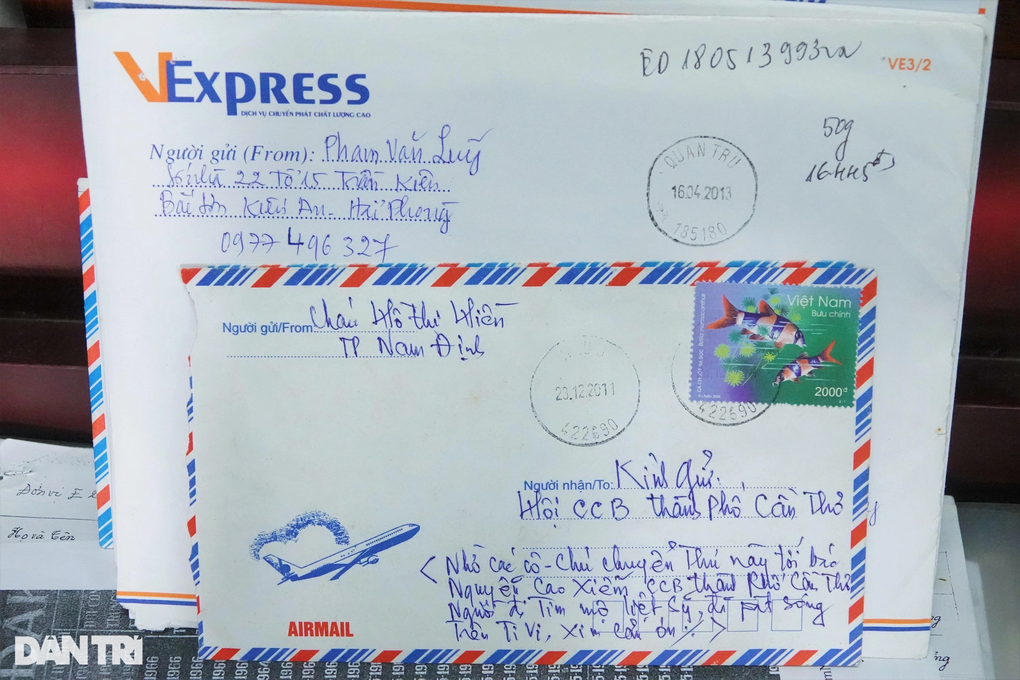 VEXPRESS
DỊCH VỤ CHUYỂN PHÁT CHẤT LƯỢNG CAO
ED 180513993
VE3/2
50g
Người gửi (From): Phạm Văn Luỹ
22 Tổ 15 Trần Kiên
Kiến An - Hải Phòng
0977 496 327
QUÁN TRỮ
16.04.2013
185180
Người gửi/From Cháu Hồ thị Hiền
TP Nam Định
23.12.2011
422690
422690
Việt Nam
Bưu chính
2000đ
Người nhận/To: Kính gửi.
Hội CCB Thành Phố Cần Thơ
(Nhờ các cô - chú chuyển Thư này tới bác
Nguyễn Cao Xiêm, CCB thành Phố Cần Thơ
Người đi Tìm mộ liệt sỹ, đã phát sóng
Trên Ti Vi, Xin cảm ơn!)
AIRMAIL
Đơn vị E
Họ và tên
DÂN TRÍ
1966